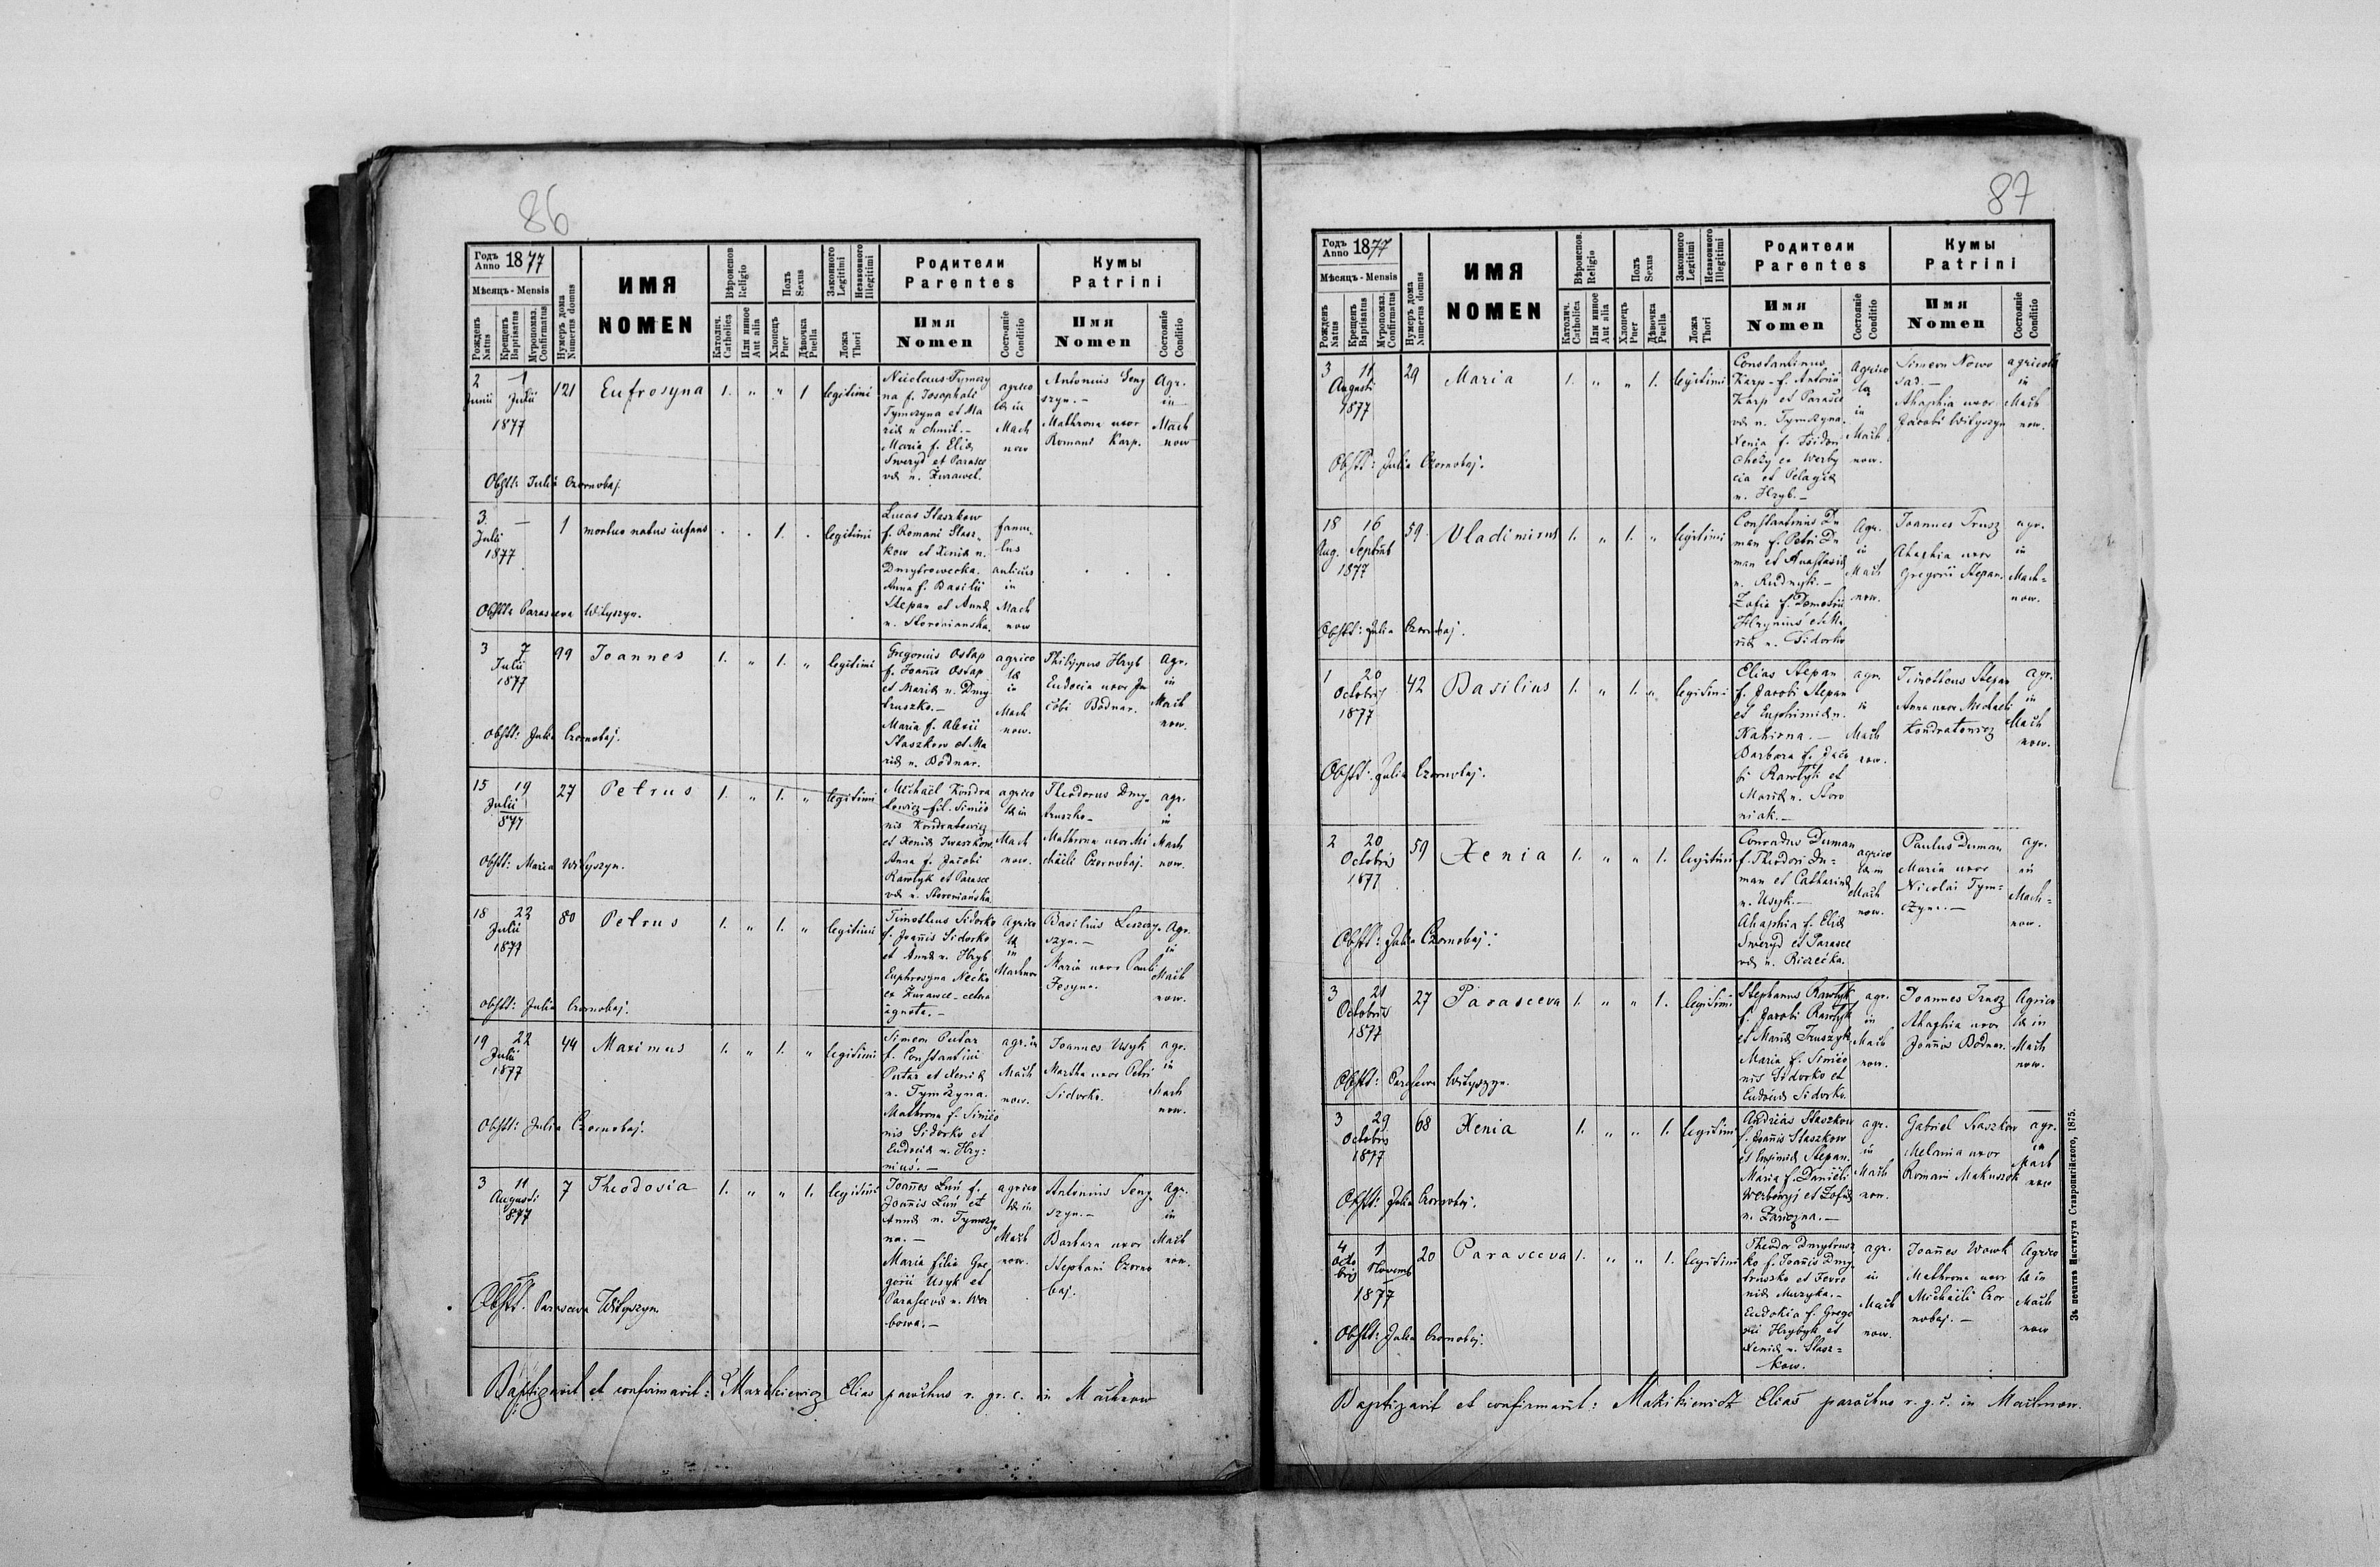 86
Годъ Anno 1877
Мѣсяцъ - Mensis
Рожденъ Natus
Крещенъ Baptisatus
Муропомаз. Confirmatus
Нумеръ дома Numerus domus
ИМЯ
NOMEN
Вѣроиспов. Religio
Католич. Catholica
Или иное Aut alia
Полъ Sexus
Хлопецъ Puer
Дѣвочка Puella
Законного Legitimi
Незаконного Illegitimi
Ложа Thori
Родители
Parentes
Имя
Nomen
Состояніе Conditio
Кумы
Patrini
Имя
Nomen
Состояніе Conditio
2 Junii 1 Julii 1877
121
Eufrosyna
1. " " 1
legitimi
Nicolaus Tymczy
na f. Josaphati
Tymczyna et Ma
riæ n. Chmil. -
Maria f. Eliæ
Sweryd et Parasce
væ n. Zurawel.
agrico
læ in
Mach
now
Antonius Seny
szyn. -
Mathrona uxor
Romani Karp.
Agr.
in
Mach
now
Obstt: Julia Czornobaj.
3 Julii 1877
1
mortuo natus infans
. . 1. .
legitimi
Lucas Staszkow
f. Romani Stasz-
kow et Xeniæ n.
Anna f. Basilii
Stepan et Annæ
famu-
lus
aulicus
in
Mach
now
Obstt: Parasceva Wityszyn.
3 7 Julii 1877
99
Joannes
1. " 1. "
legitimi
Gregorius Ostap
f. Joannis Ostap
et Mariæ n. Dmy
truszko. -
Maria f. Alexii
Staszkow et Ma
riæ n. Bodnar.
agrico
læ
in
Mach
now.
Philippus Hryb
Eudocia uxor Ja
cobi Bodnar.
Agr.
in
Mach
now.
Obstt: Julia Czornobaj.
15 19 Julii 877
27
Petrus
1. " 1. "
legitimi
Michael Kondra
towicz fil. Simeo
nis Kondratowicz
et Xeniæ Iwaszkow.
Anna f. Jacobi
Rawlyk et Parasce
væ n.
agrico
læ in
Mach
now.
Theodorus Dmy-
truszko -
Mathrona uxor Mi
chaeli Czornobaj.
agr.
in
Mach
now.
Obstt: Maria Wityszyn.
18 22 Julii 1877
80
Petrus
1. " 1. "
legitimi
Timotheus Sidorko
f. Joannis Sidorko
et Annæ n. Hryb
Euphrosyna
ignota. -
Agrico
læ
in
Machnow
Basilius
szyn. -
Maria uxor Pauli
Agr.
in
Mach
now.
Obstt: Julia Czornobaj.
19 22 Julii 1877
44
Maximus
1. " 1. "
legitimi
Simeon Putar
f. Constantini
Putar et Xeniæ
n. Tymczyna.
Mathrona f. Simeo
nis Sidorko et
Eudociæ n. Hry-
niuś. -
agr. in
Mach
now.
Joannes Usyk
Martha uxor Petri
Sidorko.
agr.
in
Mach
now.
Obstt: Julia Czornobaj.
3 11 Augusti 877
7
Theodosia
1. " " 1.
legitimi
Joannes Luń f.
Joannis Luń et
Annæ n. Tymczy
na. -
Maria filia Gre
gorii Usyk et
Parascevæ n. Wer
bowa. -
agrico
læ in
Mach
now.
Antonius Seny
szyn. -
Barbara uxor
Stephani Czorno
baj.
Agr.
in
Mach
now.
Obstt: Parasceva Wityszyn.
Baptizavit et confirmavit: Elias parochus r. gr. c. in Machnow
87
Годъ Anno 1877
Мѣсяцъ - Mensis
Рожденъ Natus
Крещенъ Baptisatus
Муропомаз. Confirmatus
Нумеръ дома Numerus domus
ИМЯ
NOMEN
Вѣроиспов. Religio
Католич. Catholica
Или иное Aut alia
Полъ Sexus
Хлопецъ Puer
Дѣвочка Puella
Законного Legitimi
Незаконного Illegitimi
Ложа Thori
Родители
Parentes
Имя
Nomen
Состояніе Conditio
Кумы
Patrini
Имя
Nomen
Состояніе Conditio
3 11 Augusti 1877
29
Maria
1. " " 1.
legitimi
Constantinus
Karp - f. Antonii
Karp et Parasce
væ n. Tymczyna.
Xenia f. Isidori
ex Werby
cia et Pelagiæ
n. Hryb. -
Agrico
læ
in
Mach
now.
Simeon Nowo
sad. -
Ahaphia uxor
Jacobi Wityszyn
agricolæ
in
Mach
now.
Obstt: Julia Czornobaj.
18 Aug. 16 Septbris 1877
59
Vladimirus
1. " 1. "
legitimi
Constantinus Du
man f. Petri Du
man et Anastasiæ
n. Rudnyk. -
Zofia f. Demetrii
Hryniuś et Ma
riæ n. Sidorko
Agr.
in
Mach
now.
Joannes Trusz
Ahaphia uxor
Gregorii Stepan.
agr.
in
Mach-
now.
Obstt: Julia Czornobaj.
1 20 Octobris 1877
42
Basilius
1. " 1. "
legitimi
Elias Stepan
f. Jacobi Stepan
et Euphimiæ n.
Barbara f. Jaco
bi Rawlyk et
Mariæ n. Storo
niak. -
agr.
in
Mach
now.
Timotheus Stepan
Anna uxor Michaeli
Kondratowicz
agr.
in
Mach
now.
Obstt: Julia Czornobaj.
2 20 Octobris 1877
59
Xenia
1. " " 1.
legitimi
Conradus Duman
f. Theodori Du-
man et Catharinæ
n. Usyk. -
Ahaphia f. Eliæ
Sweryd et Parasce
væ n.
agrico
læ in
Mach
now.
Paulus Duman
Maria uxor
Nicolai Tym-
czyna. -
agr.
in
Mach-
now.
Obstt: Julia Czornobaj.
3 21 Octobris 1877
27
Parasceva
1. " " 1.
legitimi
Stephanus Rawlyk
f. Jacobi Rawlyk
et Mariæ Truszyk
Maria f. Simeo
nis Sidorko et
Eudociæ Sidorko.
agr.
in
Mach
now.
Joannes Trusz
Ahaphia uxor
Joannis Bodnar.
Agrico
læ in
Mach
now.
Obstt: Parasceva Wityszyn.
3 29 Octobris 1877
68
Xenia
1. " " 1.
legitimi
Andreas Staszkow
f. Joannis Staszkow
et Eufimiæ Stepan.
Maria f. Danieli
Werbowyj et Zofiæ
n. Zariczna. -
agr.
in
Mach
now.
Gabriel Staszkow
Melania uxor
Romani
agr.
in
Mach
now
Obstt: Julia Czornobaj.
4 Octobris 1 Novemb 1877
20
Parasceva
1. " " 1.
legitimi
Theodor Dmytrusz
ko f. Joannis Dmy
truszko et Fevro
niæ Muzyka. -
Eudokia f. Grego
rii Hrybyk et
Xeniæ n. Stasz-
kow.
agr.
in
Mach
now.
Joannes Wowk
Mathrona uxor
Michaeli Czor
nobaj. -
Agrico
læ in
Mach
now
Obstt: Julia Czornobaj.
Baptizavit et confirmavit: Elias parochus r. g. c. in Machnow.
Зъ печатнѣ Института Ставропигійского, 1875.